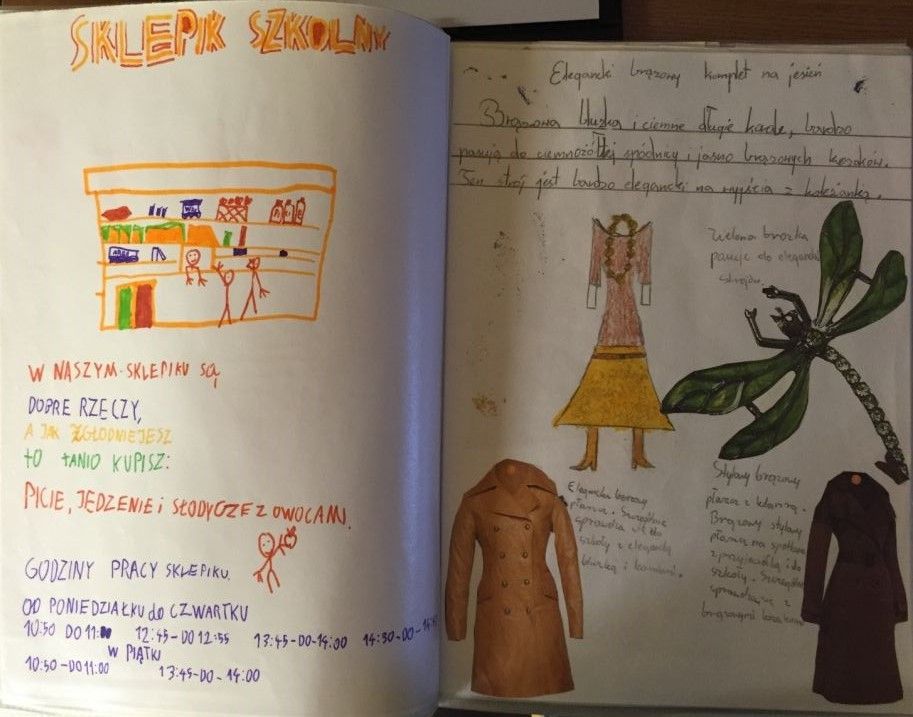 SKLEPIK SZKOLNY
W NASZYM SKLEPIKU SĄ
DOBRE RZECZY,
A JAK ZGŁODNIEJESZ
TO TANIO KUPISZ:
PICIE, JEDZENIE i SŁODYCZE Z OWOCAMI.
GODZINY PRACY SKLEPIKU.
OD PONIEDZIAŁKU do CZWARTKU
10:50 DO 11: 12:45-DO 12:55 13:45-DO-14:00 14:50-DO-
W PIĄTKI
10:50-DO 11:00 13:45-DO-14:00
Elegancki brązowy komplet na jesień
Brązowa bluzka i ciemne długie korale, bardzo
pasują do ciemnożółtej spódnicy i jasno brązowych kozaków.
Ten strój jest bardzo elegancki na wyjścia z koleżanką.
Zielona brozka
pasuje do elegancki
stroju.
Elegancki brązowy
płaszcz. Szczególnie
do
szkoły z elegancką
bluzką i
Stylowy brązowy
płaszcz z
Brązowy stylowy
płaszcz na spotkanie
z przyjaciółką i do
szkoły. Szczególnie
z
brązowymi kozakami